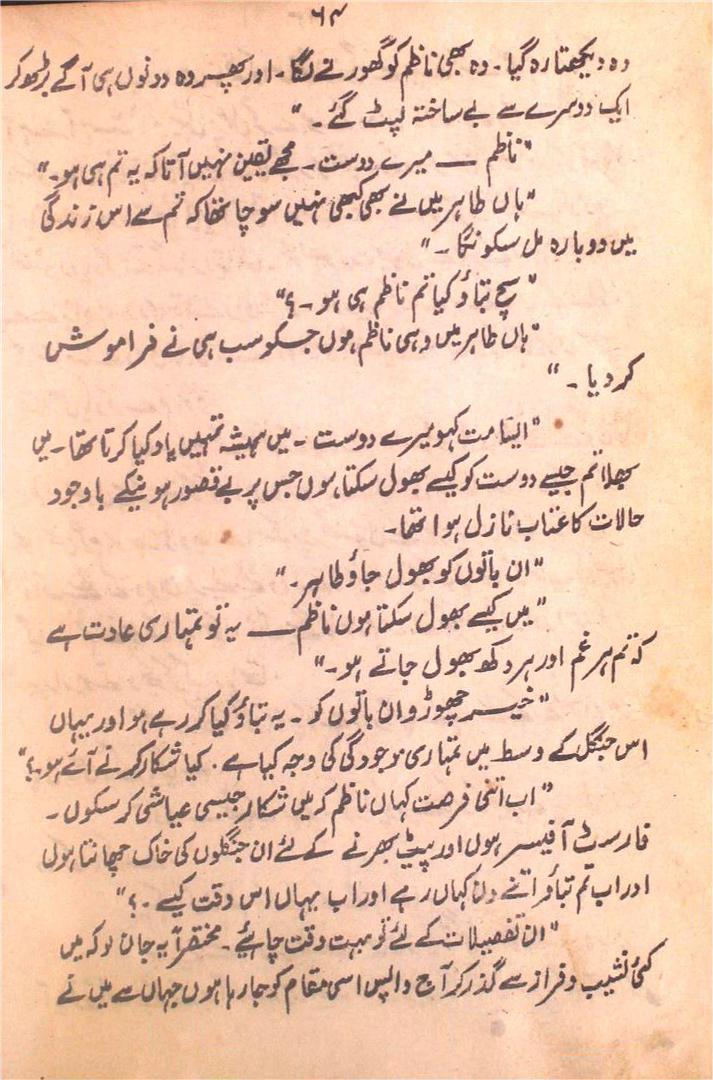 ۶۴
وہ دیکھتا رہ گیا۔ وہ بھی ناظم کو گھورنے لگا۔ اور پھر وہ دونوں ہی آگے بڑھ کر
ایک دوسرے سے بے ساختہ لپٹ گئے۔"
"ناظم ــــ میرے دوست۔ مجھے یقین نہیں آتا کہ یہ تم ہی ہو۔"
"ہاں طاہر میں نے بھی کبھی نہیں سوچا تھا کہ تم سے اس زندگی
میں دوبارہ مل سکونگا۔"
"سچ بتاؤ کیا تم ناظم ہی ہو۔؟"
"ہاں طاہر میں وہی ناظم ہوں جسکو سب ہی نے فراموش
کر دیا۔"
"ایسا مت کہو میرے دوست۔ میں ہمیشہ تمہیں یاد کیا کرتا تھا۔ میں
بھلا تم جیسے دوست کو کیسے بھول سکتا ہوں جس پر بے قصور ہونیکے باوجود
حالات کا عتاب نازل ہوا تھا۔
"ان باتوں کو بھول جاؤ طاہر۔"
"میں کیسے بھول سکتا ہوں ناظم ــــ یہ تو تمہاری عادت ہے
کہ تم ہر غم اور ہر دکھ بھول جاتے ہو۔"
"خیر چھوڑو ان باتوں کو۔ یہ بتاؤ کیا کر رہے ہو اور یہاں
اس جنگل کے وسط میں تمہاری موجودگی کی وجہ کیا ہے۔ کیا شکار کرنے آئے ہو۔؟"
"اب اتنی فرصت کہاں ناظم کہ میں شکار جیسی عیاشی کر سکوں۔
فارسٹ آفیسر ہوں اور پیٹ بھرنے کے لئے ان جنگلوں کی خاک چھانتا ہوں
اور اب تم بتاؤ اتنے دن کہاں رہے اور اب یہاں اس وقت کیسے۔؟"
"ان تفصیلات کے لئے تو بہت وقت چاہئے۔ مختصراً یہ جان لو کہ میں
کئی نشیب و فراز سے گذر کر آج واپس اسی مقام کو جا رہا ہوں جہاں سے میں نے